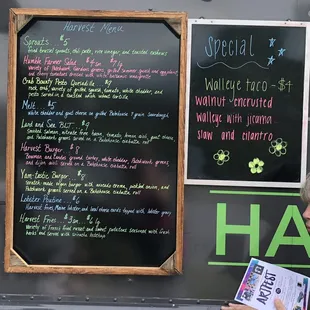 Harvest Menu
Sprouts $5
fried brussel sprouts, chili paste, rice vinegar, and toasted cashews
Humble Farmer Salad
and cherry tomatoes dressed with white balsamic vinaigrette
Crab Boursty
rock crab, variety of grilled squash, tomato, white cheddar, and
pesto served in a toasted wheat tortilla
Melt $5
white cheddar and goat cheese on grilled Bakehouse 7 grain sourdough
Land and Sea BLT $7
Smoked salmon, nitrate free bacon, tomato, greens
and pesto served on a Bakehouse ciabatta roll
Harvest Burger $8
Bowman and Landes ground turkey, white cheddar, Patchwork greens,
and dijon aioli served on a Bakehouse ciabatta roll
Yum-Lastic Burger $7
Scratch made vegan burger with avocado crema, pickled onion, and
Patchwork greens served on a Bakehouse ciabatta roll
Lobster Poutine
Harvest fries, Maine lobster and local cheese curds topped with lobster gravy
Harvest Fries
Variety of fresh fried russet and sweet potatoes seasoned with fresh
herbs and served with sriracha ketchup
Special
Walleye taco - $4
walnut encrusted
walleye with jicama
slaw and cilantro
HA
ARTFEST